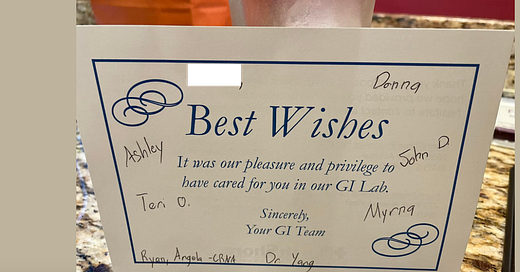 Donna
Best Wishes
Ashley
John D.
It was our pleasure and privilege to
have cared for you in our GI Lab.
Teri O.
Sincerely,
Myrna
Your GI Team
Ryan, Angela -CRNA Dr. Yang